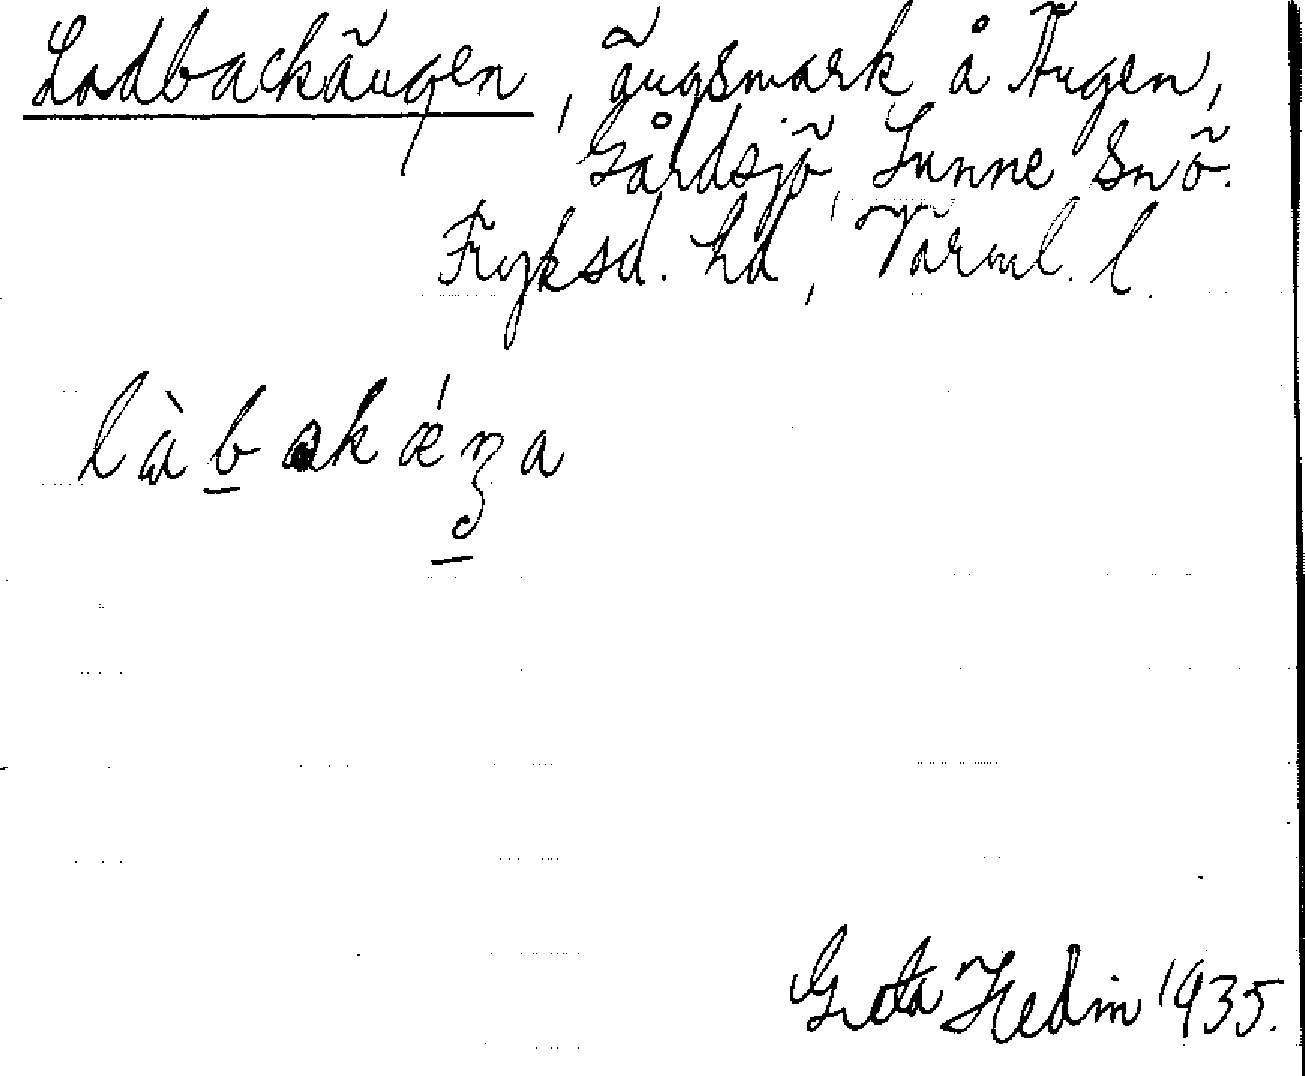 Lodbackängen, ängsmark å Ängen,
Gårdsjö, Sunne Snö.
Fryksd. hd, Värml. l.
làbakǽŋa
Greta Hedin 1935.